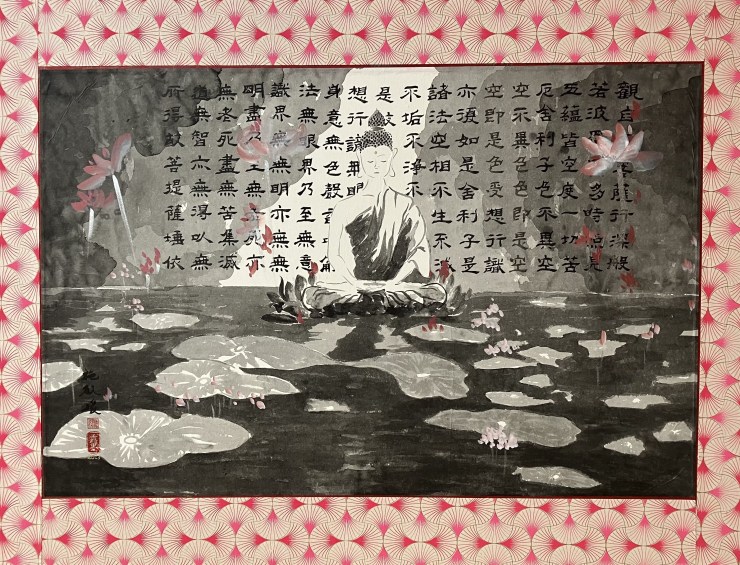 觀自薩行深般
若波多時照見
五蘊皆空度一切苦
厄舍利子色不異空
空不異色色即是空
空即是色受想行識
亦復如是舍利子是
諸法空相不生不滅
不垢不淨不
是故
想行識無眼
身意無色聲
法無眼界乃至無意
識界無無明亦無無
明盡乃至無老死亦
無老死盡無苦集滅
道無智亦無得以無
所得故菩提薩埵依